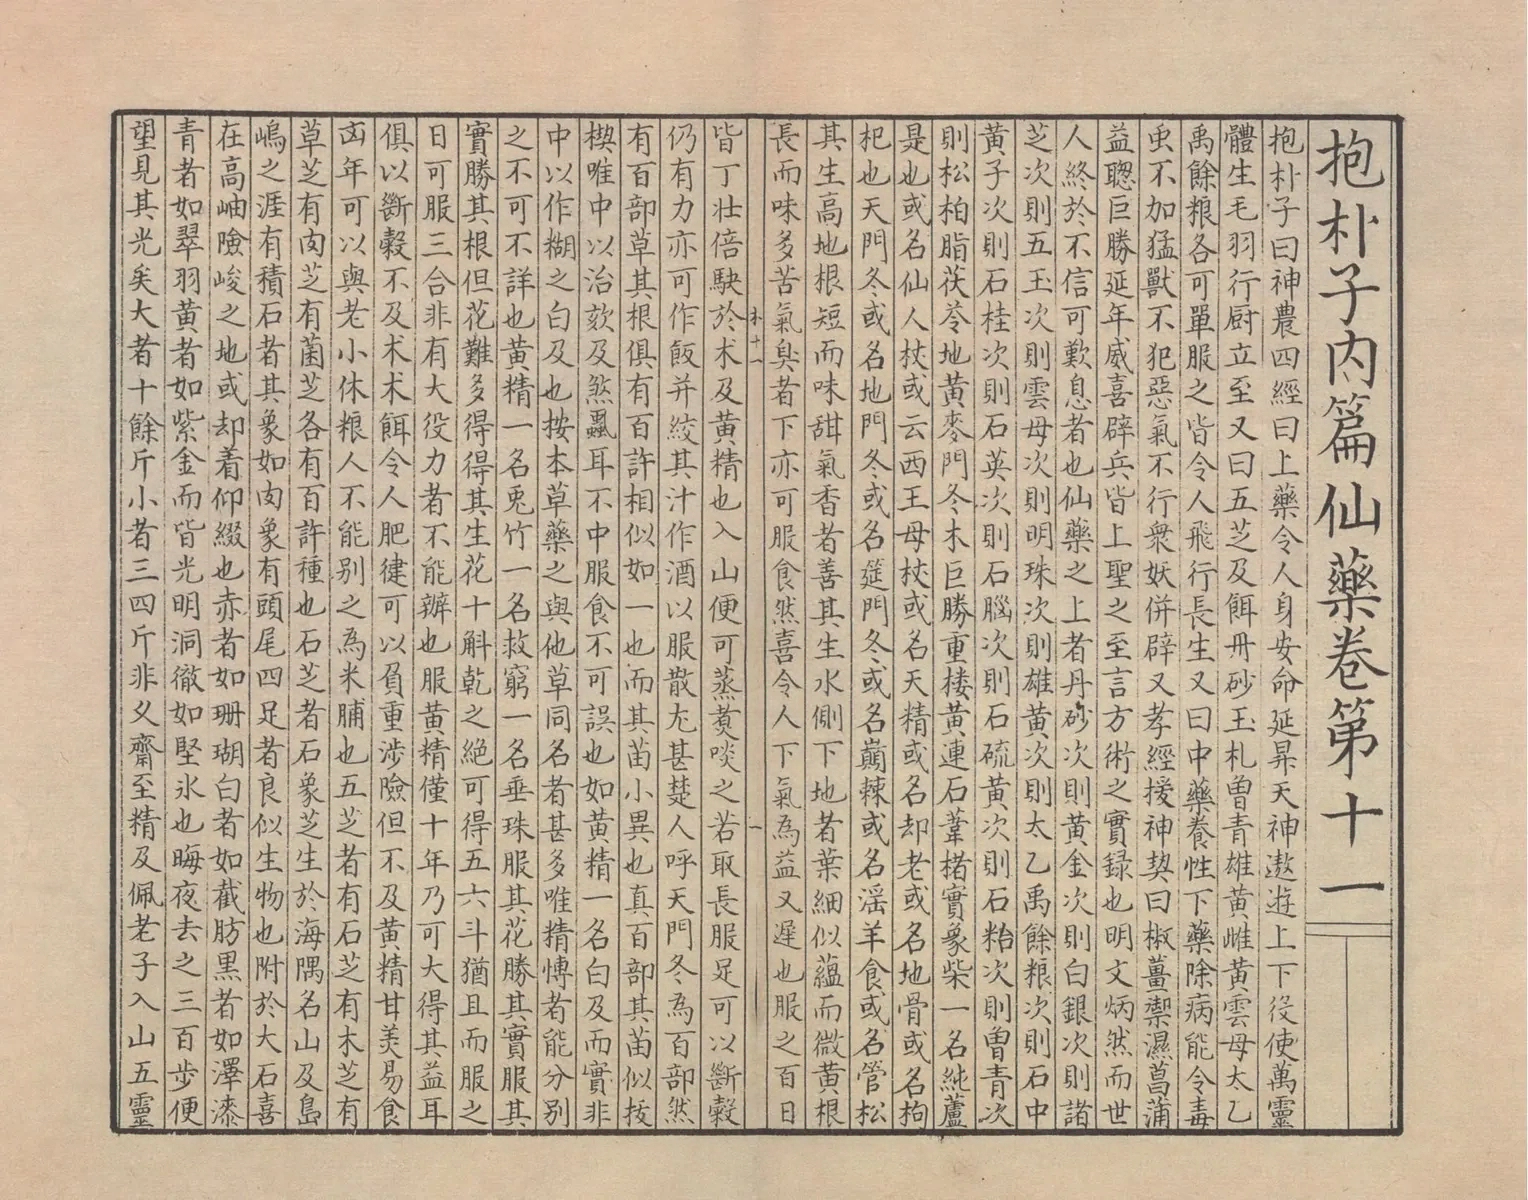 抱朴子内篇仙藥卷第十一
抱朴子曰神農四經曰上藥令人身安命延昇天神遨遊上下役使萬靈
體生毛羽行厨立至又曰五芝及餌丹砂玉札曽青雄黄雌黄雲母太乙
禹餘粮各可單服之皆令人飛行長生又曰中藥養性下藥除病能令毒
䖝不加猛獸不犯惡氣不行衆妖併辟又孝經援神契曰椒薑禦濕菖蒲
益聰巨勝延年威喜辟兵皆上聖之至言方術之實録也明文炳然而世
人終於不信可歎息者也仙藥之上者丹砂次則黄金次則白銀次則諸
芝次則五玉次則雲母次則明珠次則雄黄次則太乙禹餘粮次則石中
黄子次則石桂次則石英次則石腦次則石硫黄次則石粭次則曽青次
則松柏脂茯苓地黄麥門冬木巨勝重楼黄連石葦楮實象柴一名純蘆
是也或名仙人杖或云西王母杖或名天精或名却老或名地骨或名枸
杞也天門冬或名地門冬或名莚門冬或名巔棘或名滛羊食或名管松
其生高地根短而味甜氣香者善其生水側下地者葉細似蘊而微黄根
長而味多苦氣臭者下亦可服食然喜令人下氣為益又遲也服之百日
朴十一
一
皆丁壮倍駃於术及黄精也入山便可蒸煑啖之若取長服足可以斷穀
仍有力亦可作飯并絞其汁作酒以服散尤甚楚人呼天門冬為百部然
有百部草其根俱有百許相似如一也而其苗小異也真百部其苗似拔
楔唯中以治欬及煞蝨耳不中服食不可誤也如黄精一名白及而實非
中以作糊之白及也按本草藥之與他草同名者甚多唯精愽者能分别
之不可不詳也黄精一名兎竹一名救窮一名垂珠服其花勝其實服其
實勝其根但花難多得得其生花十斛乾之絶可得五六斗猶且而服之
日可服三合非有大役力者不能辦也服黄精僅十年乃可大得其益耳
俱以斷穀不及术术餌令人肥健可以負重涉險但不及黄精甘美易食
凶年可以與老小休粮人不能别之為米脯也五芝者有石芝有木芝有
草芝有肉芝有菌芝各有百許種也石芝者石象芝生於海隅名山及島
嶋之涯有積石者其象如肉象有頭尾四足者良似生物也附於大石喜
在高岫險峻之地或却着仰綴也赤者如珊瑚白者如截肪黑者如澤漆
青者如翠羽黄者如紫金而皆光明洞徹如堅氷也晦夜去之三百步便
望見其光矣大者十餘斤小者三四斤非乆齋至精及佩老子入山五靈